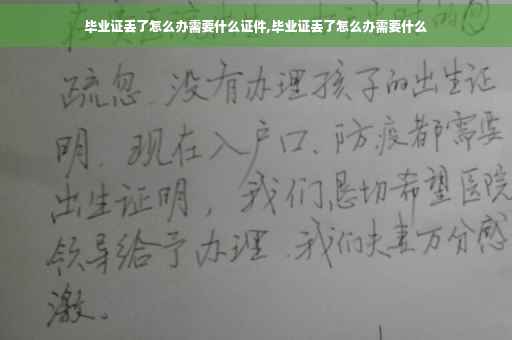 毕业证丢了怎么办需要什么证件,毕业证丢了怎么办需要什么
疏忽、没有办理孩子的出生证
明、现在入户口、防疫都需要
出生证明，我们恳切希望医院
领导给予办理、我们夫妻万分感
激。